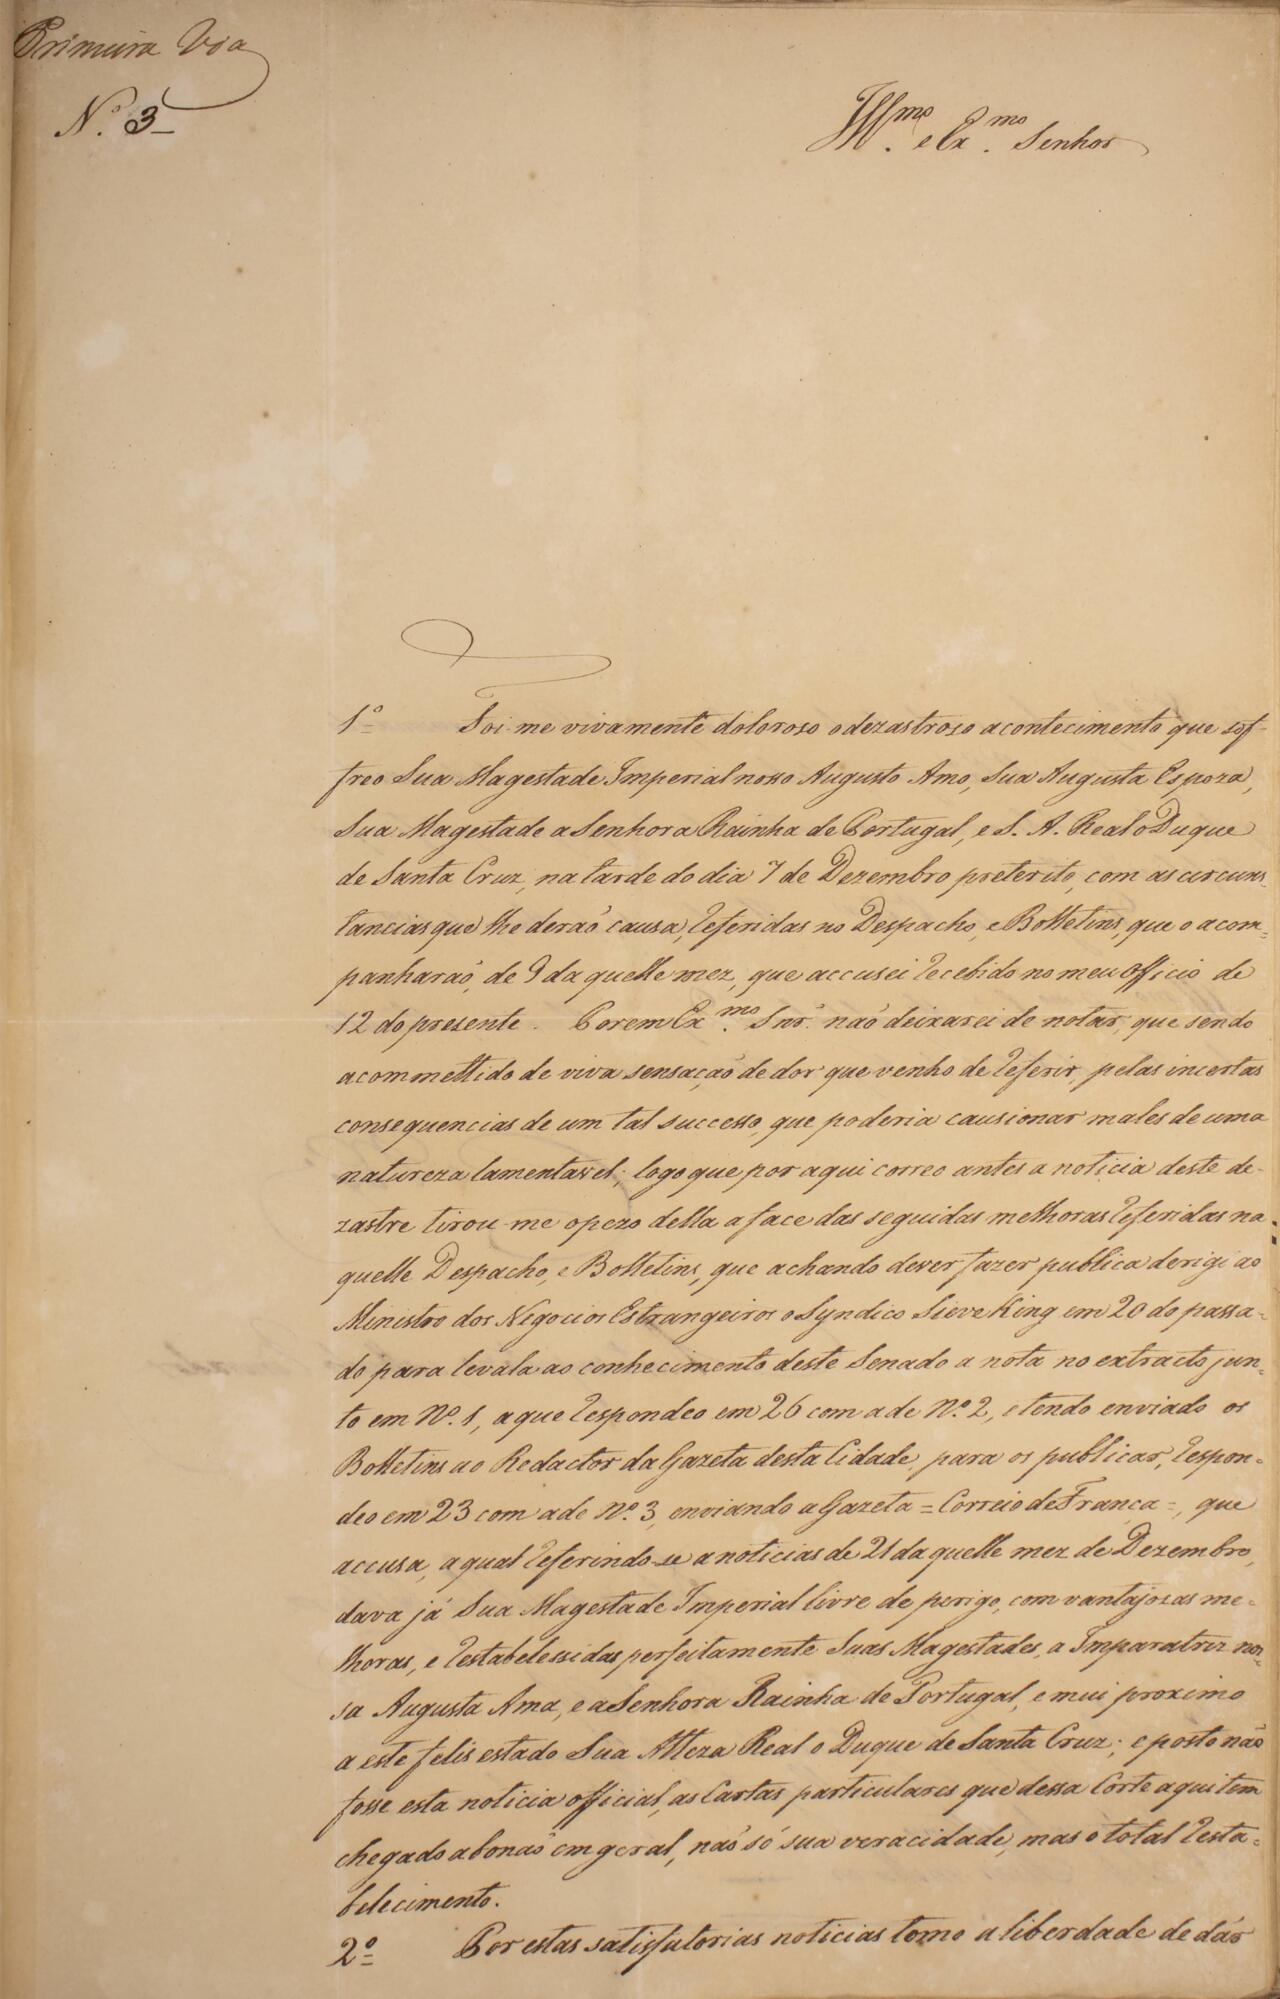 Primeira Via
N.º 3
Ill.mo e Ex.mo Senhor
1º Foi-me vivamente doloroso o dezastroso acontecimento que sof-
freo Sua Magestade Imperial nosso Augusto Amo, Sua Augusta Espoza,
Sua Magestade a Senhora Rainha de Portugal, e S. A. Real o Duque
de Santa Cruz, na tarde do dia 7 de Dezembro preterito, com as circuns-
tancias que lhe derão causa, referidas no Despacho, e Bolletins, que o acom-
panharaõ, de 9 daquelle mez, que accusei recebido no meu Officio de
12 do presente. Porem Ex.mo Snr. naõ deixarei de notar, que sendo
acommettido de viva sensaçaõ de dor que venho de referir, pelas incertas
consequencias de um tal successo, que poderia causionar males de uma
natureza lamentavel; logo que por aqui correo antes a noticia deste de-
zastre tirou-me o pezo della a face das seguidas melhoras referidas na-
quelle Despacho, e Bolletins, que achando dever fazer publica derigi ao
Ministro dos Negocios Estrangeiros o Syndico Sieveking em 20 do passa-
do para levala ao conhecimento deste Senado a nota no extracto jun-
to em Nº. 1, a que respondeo em 26 com a de Nº. 2, e tendo enviado os
Bolletins ao Redactor da Gazeta desta Cidade, para os publicar, respon-
deo em 23 com a de Nº. 3, enviando a Gazeta = Correio de França =, que
accusa, a qual referindo-se a noticias de 21 daquelle mez de Dezembro,
dava já Sua Magestade Imperial livre de perigo, com vantajozas me-
lhoras, e restabelessidas perfeitamente Suas Magestades, a Imparatriz nos-
sa Augusta Ama, e a Senhora Rainha de Portugal, e mui proximo
a este felis estado Sua Alteza Real o Duque de Santa Cruz; e posto não
fosse esta noticia official, as Cartas particulares que dessa Corte aqui tem
chegado abonaõ em geral, naõ só sua veracidade, mas o total resta-
belecimento.
2º Por estas satisfatorias noticias tomo a liberdade de dár